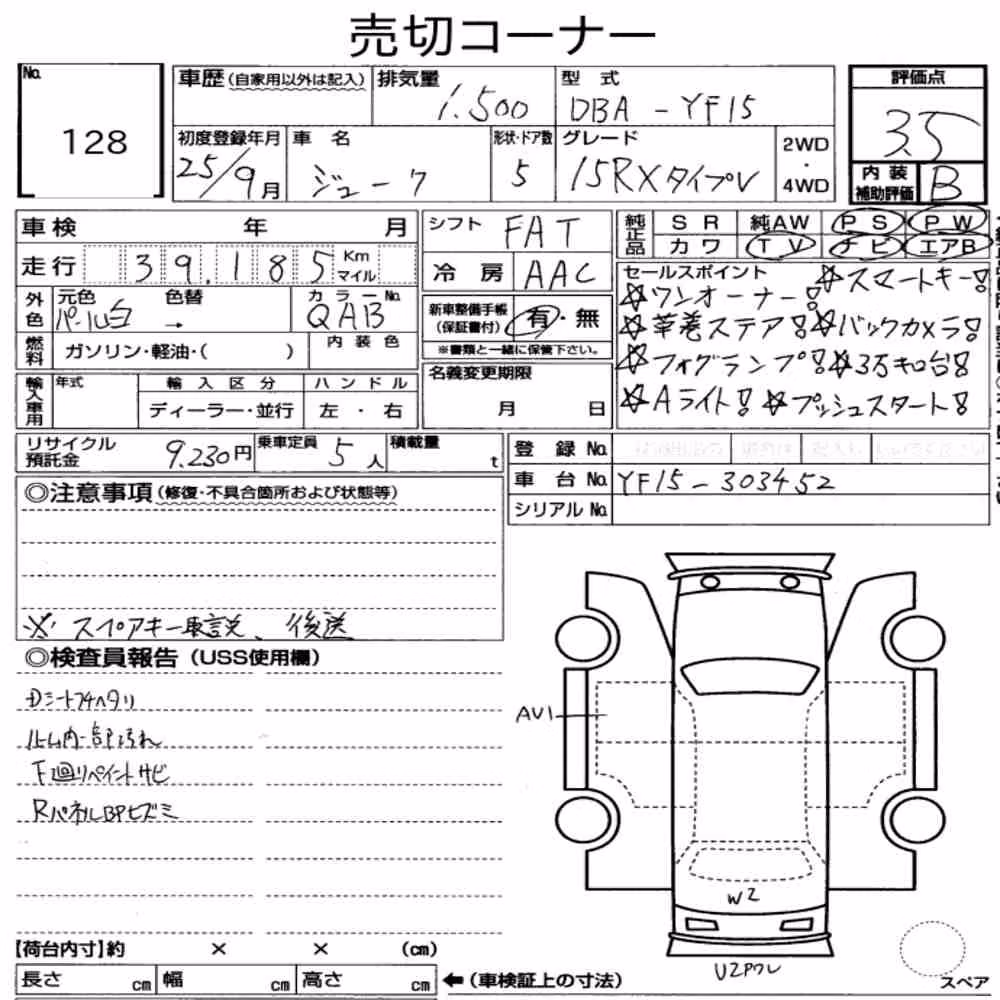 売切コーナー
No. 128
車歴(自家用以外は記入) 排気量 1.500 型式 DBA-YF15 評価点 3.5
初度登録年月 25/9月 車名 ジューク 形状・ドア数 5 グレード 15RXタイプV 2WD・4WD 内装補助評価 B
車検 年 月 シフト FAT 純正品 SR 純AW PS PW
カワ TV ナビ エアB
走行 39.185 Km マイル 冷房 AAC
セールスポイント ☆スマートキー!
☆ワンオーナー!
外色 元色 パール白 色替 → カラーNo. QAB 新車整備手帳(保証書付) 有・無
☆革巻ステア! ☆バックカメラ!
燃料 ガソリン・軽油・( ) 内装色 ※書類と一緒に保管下さい。
☆フォグランプ! ☆3万キロ台!
輸入車用 年式 輸入区分 ハンドル 名義変更期限
ディーラー・並行 左・右 月 日
☆Aライト! ☆プッシュスタート!
リサイクル預託金 9.230円 乗車定員 5人 積載量 t 登録No.
車台No. YF15-303452
シリアルNo.
◎注意事項(修復・不具合箇所および状態等)
※ スペアキー取説、後送
◎検査員報告(USS使用欄)
Dシートフチヘタリ
ルーム内一部汚れ
F廻リペイントサビ
RパネルBPヒズミ
AU1
W2
U2Pワレ
スペア
【荷台内寸】約 × × (cm)
長さ cm 幅 cm 高さ cm ←(車検証上の寸法)